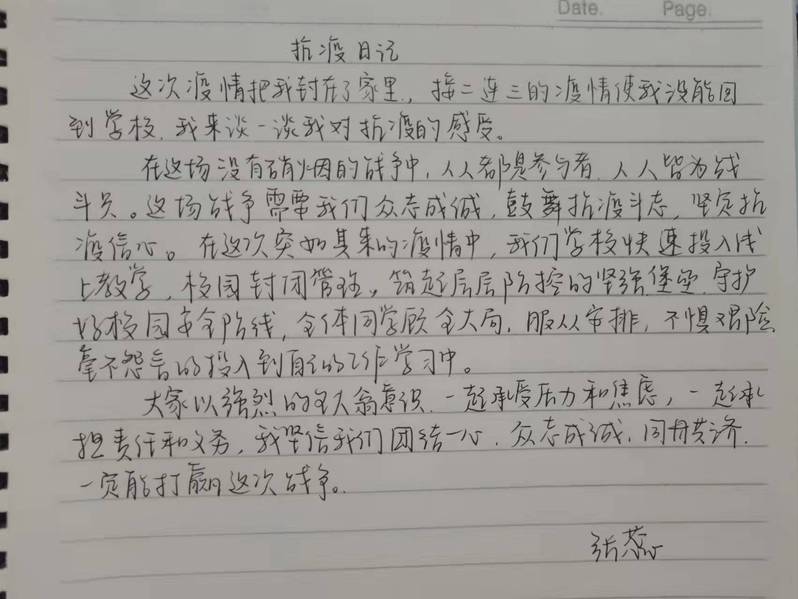 Date.    Page.
抗疫日记
这次疫情把我封在了家里,接二连三的疫情使我没能回
到学校,我来谈一谈我对抗疫的感受。
在这场没有硝烟的战争中,人人都是参与者,人人皆为战
斗员。这场战争需要我们众志成诚,鼓舞抗疫斗志,坚定抗
疫信心。在这次突如其来的疫情中,我们学校快速投入线
上教学,校园封闭管理,筑起层层防控的坚强堡垒,守护
好校园安全防线,全体同学顾全大局,服从安排,不惧艰险
毫不怨言的投入到自己的工作学习中。
大家以强烈的主人翁意识,一起承受压力和焦虑,一起承
担责任和义务,我坚信我们团结一心,众志成诚,同舟共济,
一定能打赢这次战争。
张蕊